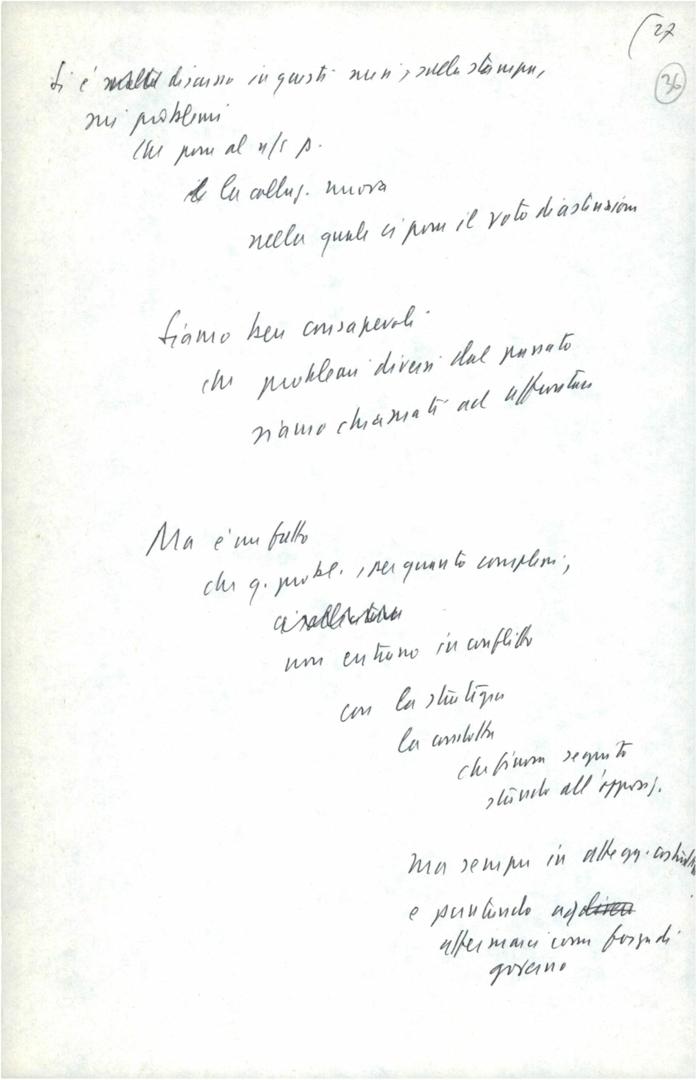 27
36
Si è discusso in questi mesi, sulla stampa,
sui problemi
che pone al n/s p.
la colloc. nuova
nella quale ci pone il voto di astensione
Siamo ben consapevoli
che problemi diversi dal passato
siamo chiamati ad affrontare
Ma è un fatto
che q. probl., per quanto complessi,
non entrano in conflitto
con la strategia
la condotta
che finora seguito
stando all'oppos.
Ma sempre in attegg. costrutt
e puntando ad
affermarci come forza di
governo